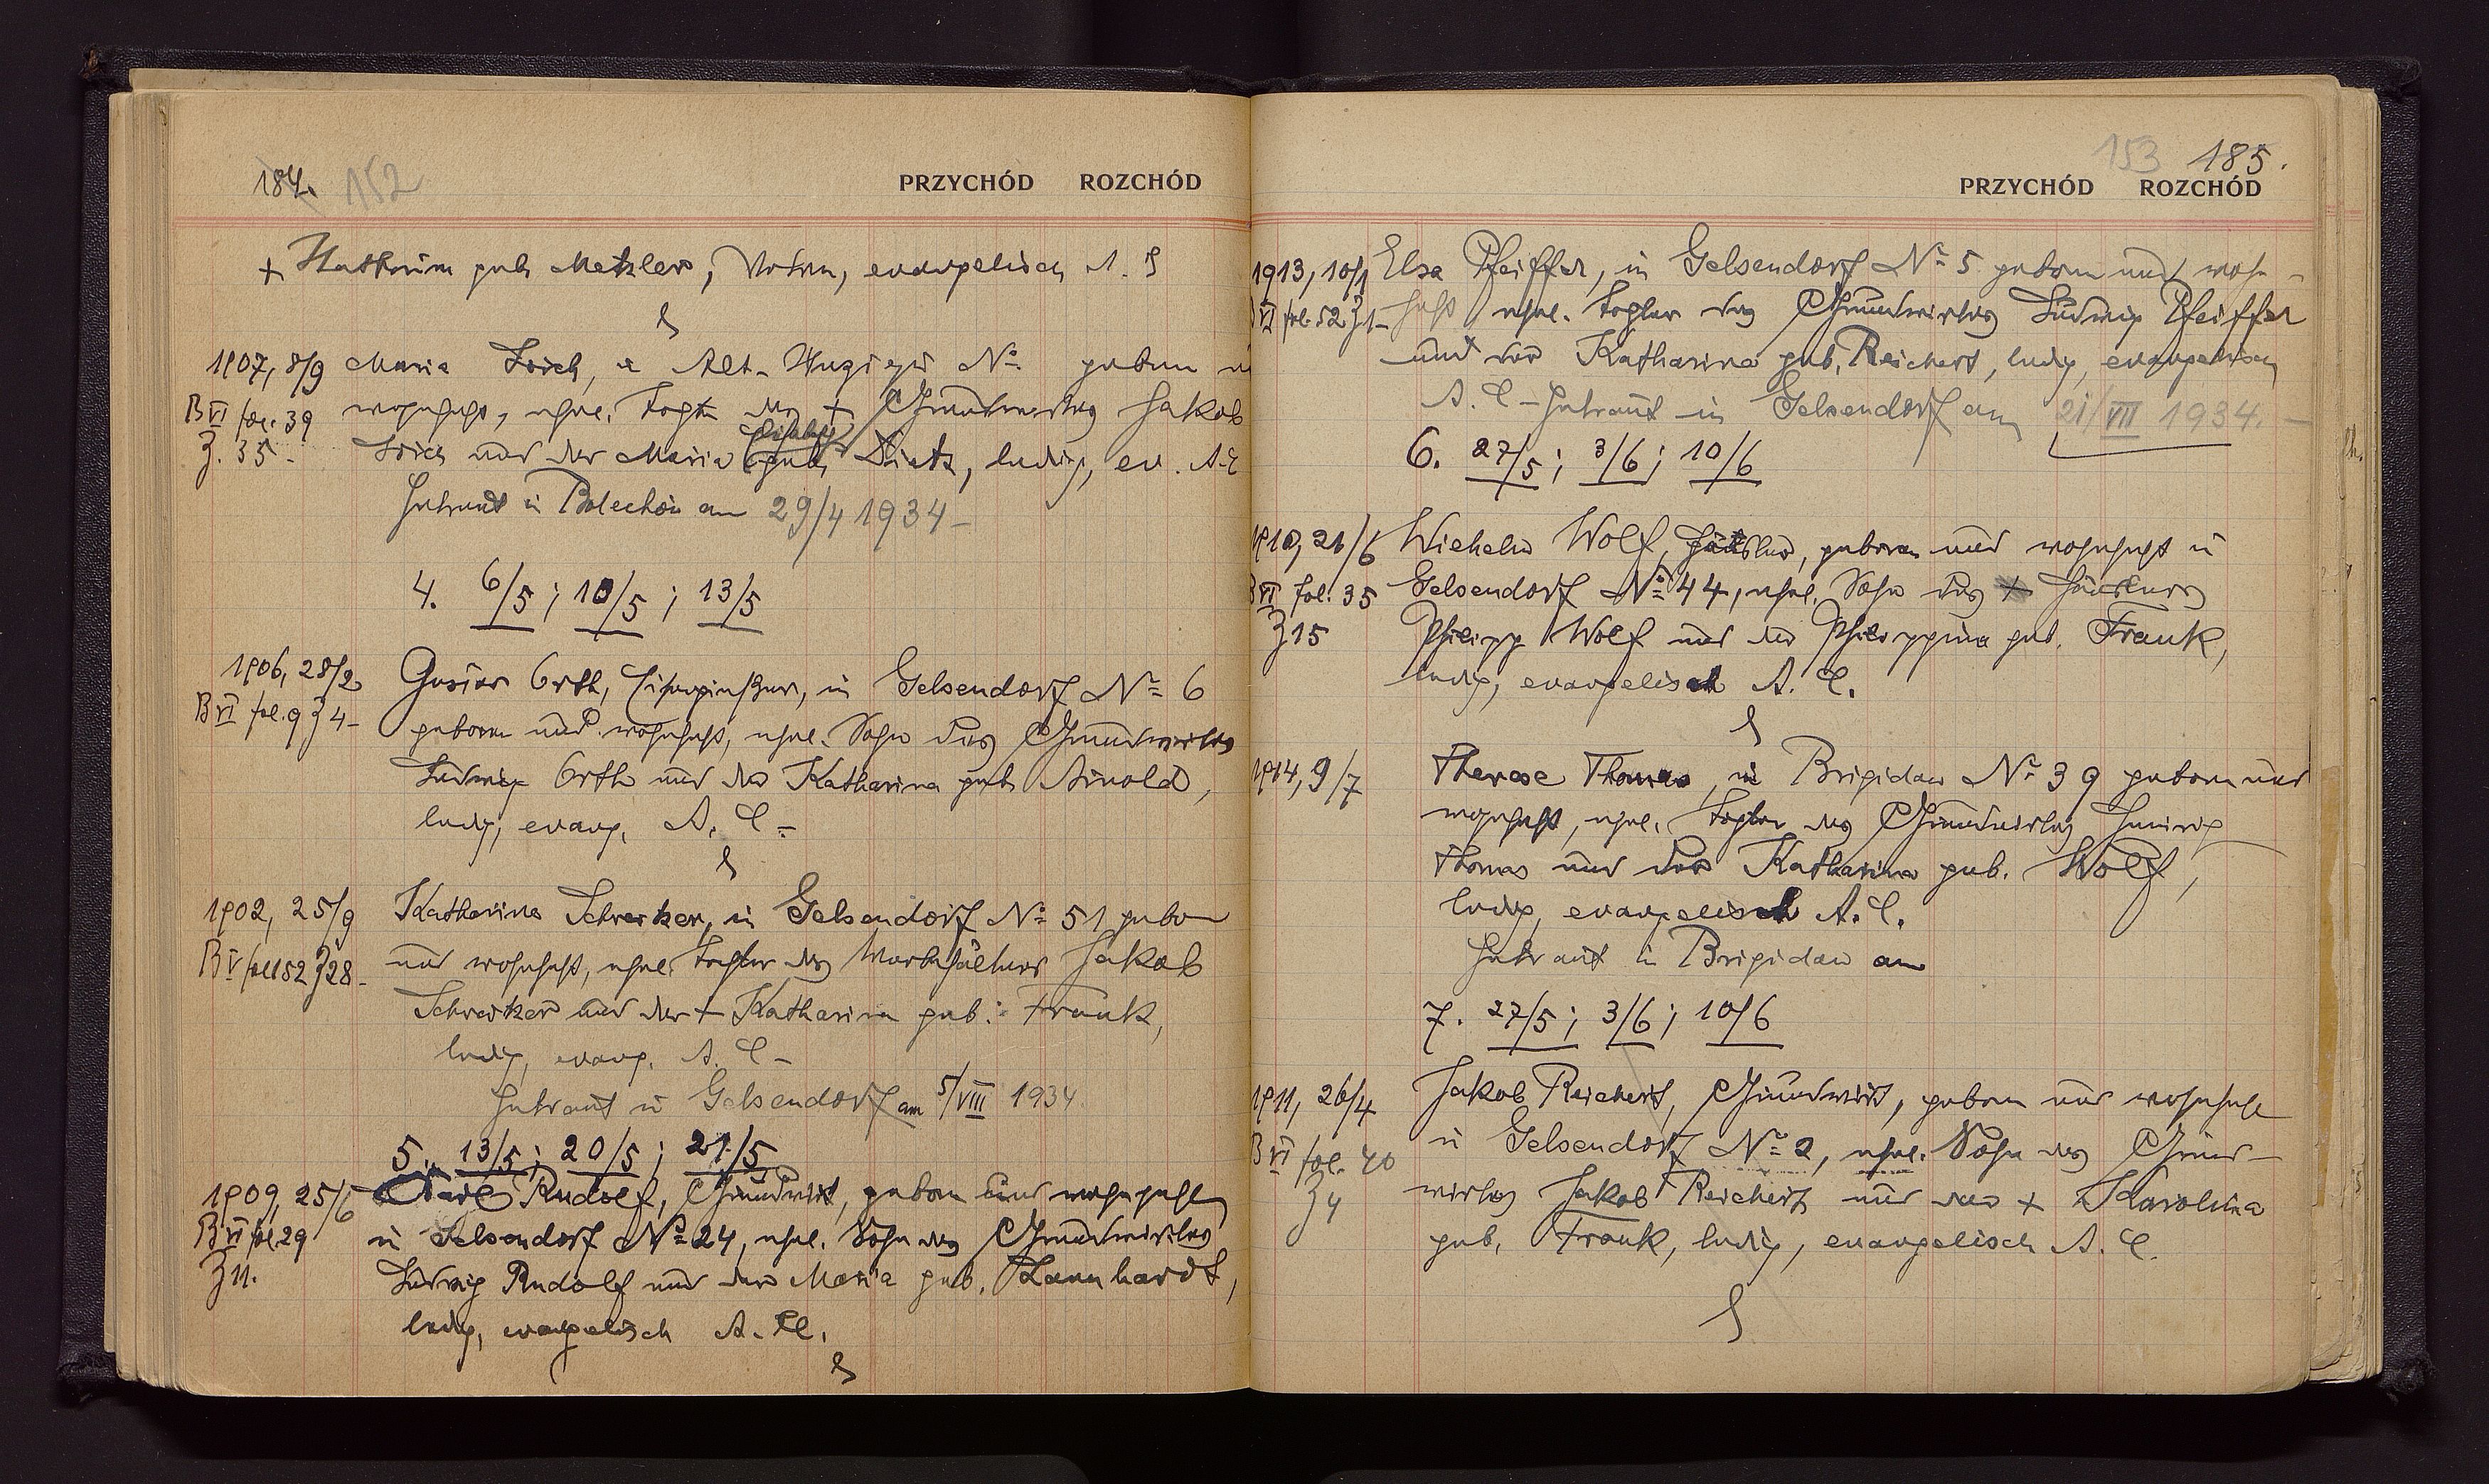 184. 152
PRZYCHÓD ROZCHÓD
+ Katharina geb. Metzler, Witwe, evangelisch A. C
&
1907, 8/9 Maria Zoich, in Alt- No geboren u
B VI fol. 39 wohnhaft, ehel. Tochter des + Grundwirtes Jakob
Z. 35 - und der Maria Elisabeth geb. Dietz, ledig, ev. A. C
Getraut in Bolechów am 29/4 1934 -
4. 6/5; 10/5; 13/5
1906, 28/2 Gustav Orth, in Gelsendorf No 6
B VI fol. 9 Z 4 - geboren und wohnhaft, ehel. Sohn des Grundwirtes
Ludwig Orth und der Katharina geb. Arnold,
ledig, evang. A. C -
&
1902, 25/9 Katharina Schreitzer, in Gelsendorf No 51 geboren
B V fol 152 Z 28 - und wohnhaft, ehel. Tochter des Jakob
Schreitzer und der + Katharina geb. Frank,
ledig, evang. A. C -
Getraut in Gelsendorf am 5/VIII 1934
5. 13/5; 20/5; 21/5
1909, 25/6 Karl Rudolf, Grundwirt, geboren und wohnhaft
B VI fol. 29 in Gelsendorf No 24, ehel. Sohn des Grundwirtes
Z 11. Ludwig Rudolf und der Maria geb. Lannhardt,
ledig, evangelisch A. C.
&
153 185.
PRZYCHÓD ROZCHÓD
1913, 10/1 Elsa Pfeiffer, in Gelsendorf No 5 geboren und wohn-
VI fol. 52 Z 1 - haft, ehel. Tochter des Grundwirtes Ludwig Pfeiffer
und der Katharina geb. Reichert, ledig, evangelisch
A. C - Getraut in Gelsendorf am 21/VII 1934. -
6. 27/5; 3/6; 10/6
1910, 26/6 Wilhelm Wolf, Häusler, geboren und wohnhaft in
B VI fol. 35 Gelsendorf No 44, ehel. Sohn des + Häuslers
Z 15 Philipp Wolf und der Philippina geb. Frank,
ledig, evangelisch A. C.
&
1914, 9/7 Therese Thomas, in Brigidau No 39 geboren und
wohnhaft, ehel. Tochter des Grundwirtes Heinrich
Thomas und der Katharina geb. Wolf,
ledig, evangelisch A. C.
Getraut in Brigidau am
7. 27/5; 3/6; 10/6
1911, 26/4 Jakob Reichert, Grundwirt, geboren und wohnhaft
B VI fol. 40 in Gelsendorf No 2, ehel. Sohn des Grund-
Z 4 wirtes Jakob Reichert und der + Karolina
geb. Frank, ledig, evangelisch A. C.
&